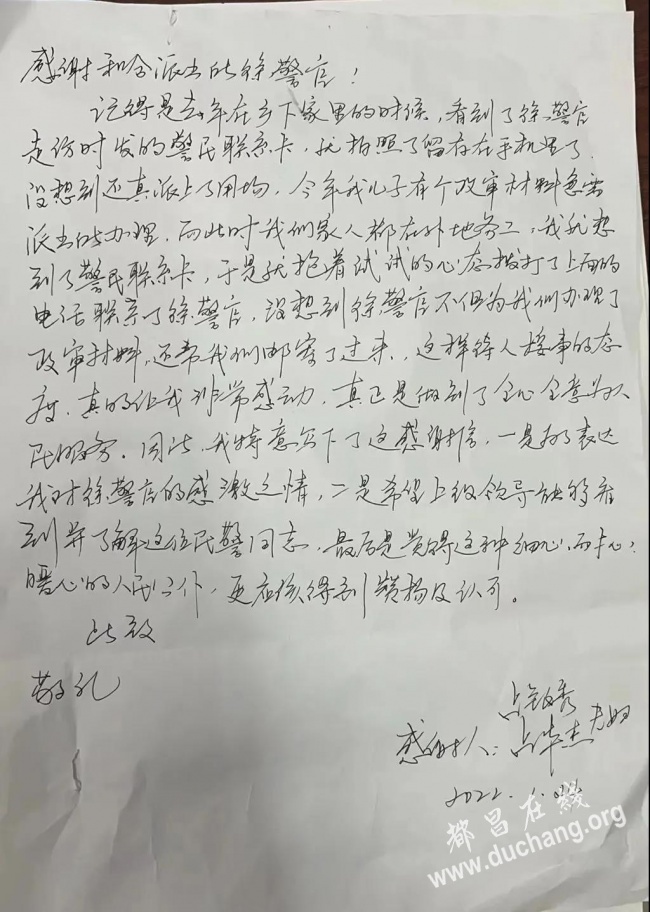 感谢和合派出所徐警官！
记得是去年在乡下家里的时候，看到了徐警官
走访时发的警民联系卡，就拍照了留存在手机里了．
没想到还真派上了用场，今年我儿子有个政审材料急需
派出所办理．而此时我们家人都在外地务工，我就想
到了警民联系卡，于是就抱着试试的心态拨打了上面的
电话联系了徐警官，没想到徐警官不但为我们办理了
政审材料，还帮我们邮寄了过来，这样待人接事的态
度，真的让我非常感动，真正是做到了全心全意为人
民服务．因此，我特意写下了这感谢信，一是为了表达
我对徐警官的感激之情，二是希望上级领导能够看
到并了解这位民警同志，最后是觉得这种细心、
暖心的人民公仆，更应该得到赞扬及认可。
此致
敬礼
感谢人：占华杰 夫妇
2022.
都昌在线
www.duchang.org